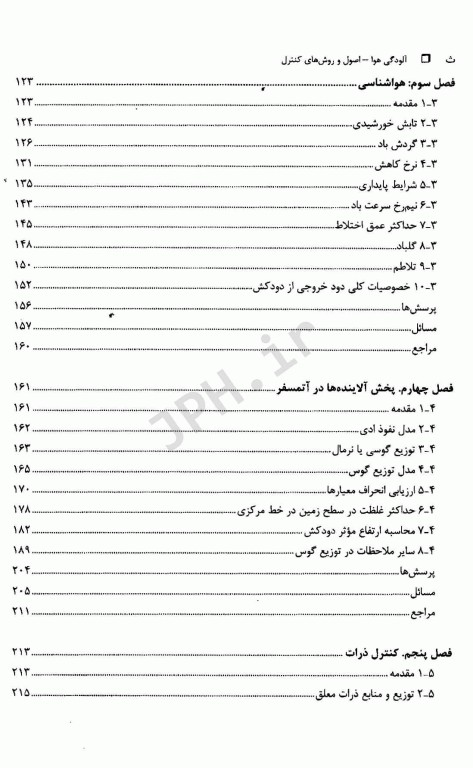 ث ❒ آلودگی هوا – اصول و روش‌های کنترل
فصل سوم: هواشناسی ........ ۱۲۳
۳-۱ مقدمه ........ ۱۲۳
۳-۲ تابش خورشیدی ........ ۱۲۴
۳-۳ گردش باد ........ ۱۲۶
۳-۴ نرخ کاهش ........ ۱۳۱
۳-۵ شرایط پایداری ........ ۱۳۵
۳-۶ نیم‌رخ سرعت باد ........ ۱۴۳
۳-۷ حداکثر عمق اختلاط ........ ۱۴۵
۳-۸ گلباد ........ ۱۴۸
۳-۹ تلاطم ........ ۱۵۰
۳-۱۰ خصوصیات کلی دود خروجی از دودکش ........ ۱۵۲
پرسش‌ها ........ ۱۵۶
مسائل ........ ۱۵۷
مراجع ........ ۱۶۰
فصل چهارم. پخش آلاینده‌ها در آتمسفر ........ ۱۶۱
۴-۱ مقدمه ........ ۱۶۱
۴-۲ مدل نفوذ ادی ........ ۱۶۲
۴-۳ توزیع گوسی یا نرمال ........ ۱۶۳
۴-۴ مدل توزیع گوس ........ ۱۶۵
۴-۵ ارزیابی انحراف معیارها ........ ۱۷۰
۴-۶ حداکثر غلظت در سطح زمین در خط مرکزی ........ ۱۷۸
۴-۷ محاسبه ارتفاع مؤثر دودکش ........ ۱۸۲
۴-۸ سایر ملاحظات در توزیع گوس ........ ۱۸۹
پرسش‌ها ........ ۲۰۴
مسائل ........ ۲۰۵
مراجع ........ ۲۱۱
فصل پنجم. کنترل ذرات ........ ۲۱۳
۵-۱ مقدمه ........ ۲۱۳
۵-۲ توزیع و منابع ذرات معلق ........ ۲۱۵
JPH.ir